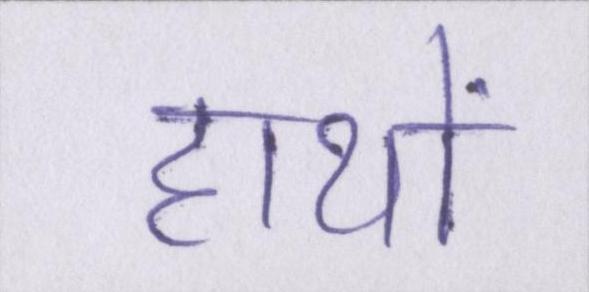 हाथों